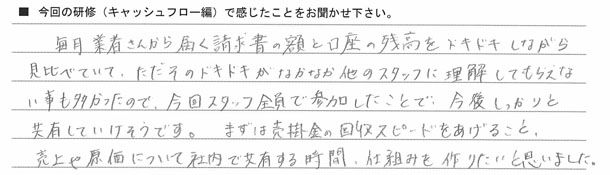 ■ 今回の研修（キャッシュフロー編）で感じたことをお聞かせ下さい。
毎月業者さんから届く請求書の額と口座の残高をドキドキしながら
見比べていて、ただそのドキドキがなかなか他のスタッフに理解してもらえな
い事も多かったので、今回スタッフ全員で参加したことで、今後しっかりと
共有していけそうです。 まずは売掛金の回収スピードをあげること、
売上や原価について社内で共有する時間、仕組みを作りたいと思いました。